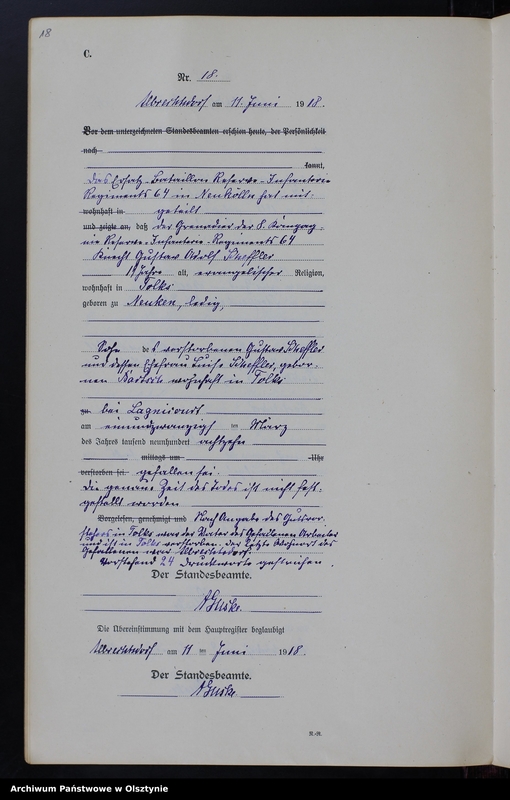 18
C.
Nr. 18.
Albrechtsdorf am 11. Juni 1918.
Vor dem unterzeichneten Standesbeamten erschien heute, der Persönlichkeit
nach
kannt,
das Ersatz-Bataillon Reserve-Infanterie
Regiments 64 in Neukölln hat mit-
wohnhaft in geteilt
und zeigte an, daß der Grenadier der 8. Kompag-
nie Reserve-Infanterie-Regiments 64
Knecht Gustav Adolf Scheffler
19 Jahre alt, evangelischer Religion,
wohnhaft in Tolks
geboren zu Neuken, ledig,
Sohn des verstorbenen Gustav Scheffler
und dessen Ehefrau Luise Scheffler, gebor-
nen wohnhaft in Tolks
zu bei Lagnicourt
am einundzwanzigsten März
des Jahres tausend neunhundert achtzehn
mittags um Uhr
verstorben sei. gefallen sei.
Die genaue Zeit des Todes ist nicht fest-
gestellt worden
Vorgelesen, genehmigt und Nach Angabe des Gutsvor-
stehers in Tolks war der Vater des Gefallenen Arbeiter
und ist in Tolks verstorben. der letzte Wohnort des
Gefallenen war Albrechtsdorf.
Vorstehend 24 Druckworte gestrichen.
Der Standesbeamte.
Die Übereinstimmung mit dem Hauptregister beglaubigt
Albrechtsdorf am 11 ten Juni 1918.
Der Standesbeamte.
Archiwum Państwowe w Olsztynie